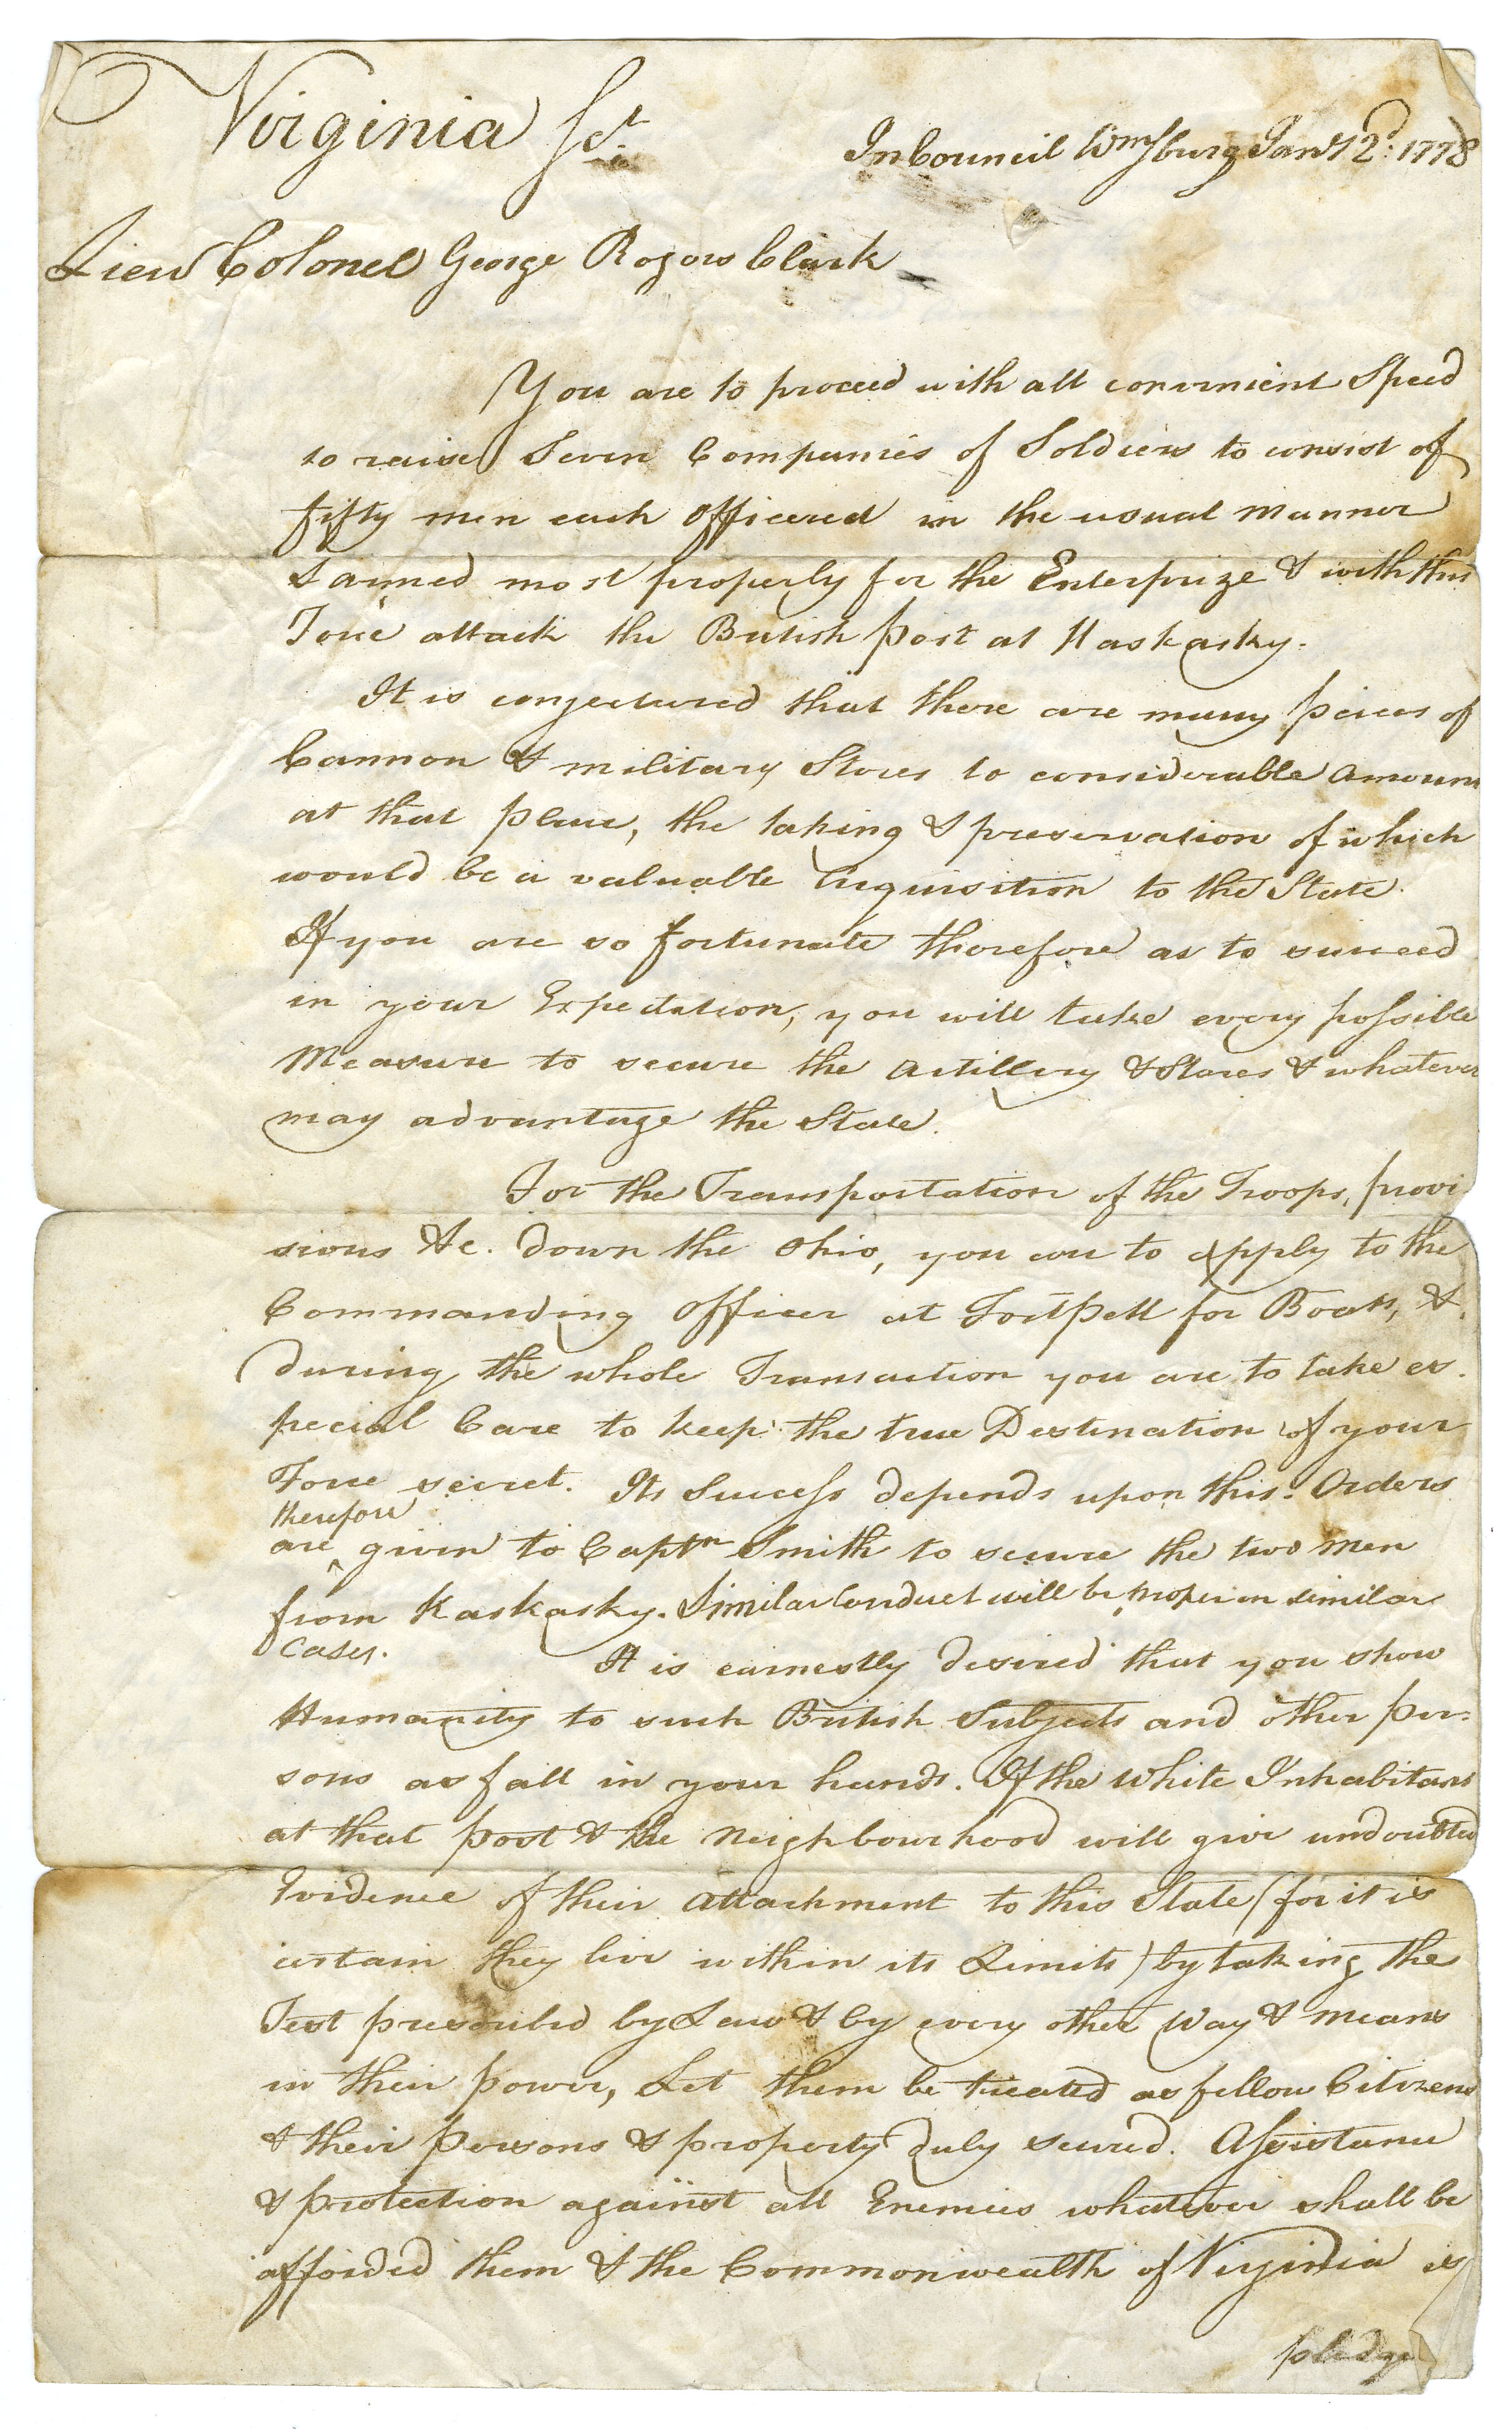 Virginia Sct.
In Council Wmsburg Jany 2d. 1778
Lieut Colonel George Rogers Clark
You are to proceed with all convenient Speed
to raise Seven Companies of Soldiers to consist of
fifty men each officered in the usual manner
& armed most properly for the Enterprize & with this
Force attack the British post at Kaskasky.
It is conjectured that there are many peices of
Cannon & military Stores to considerable amount
at that place, the taking & preservation of which
would be a valuable Acquisition to the State.
If you are so fortunate therefore as to succeed
in your Expectation, you will take every possible
Measure to secure the artillery & Stores & whatever
may advantage the State.
For the Transportation of the Troops, provi
sions &c. down the Ohio, you are to apply to the
Commanding Officer at Fort Pitt for Boats, &.
during the whole Transaction you are to take es
pecial Care to keep the true Destination of your
Force secret. Its Success depends upon this. Orders
therefore
are ^ given to Captn Smith to secure the two men
from Kaskasky. Similar Conduct will be proper in similar
Cases.
It is earnestly desired that you show
Humanity to such British Subjects and other per-
sons as fall in your hands. If the white Inhabitants
at that post & the neighbourhood will give undoubted
Evidence of their attachment to this State (for it is
certain they live within its Limits) by taking the
Test prescribed by Law & by every other way & means
in their power, Let them be treated as fellow Citizens
& their persons & property duly secured. Assistance
& protection against all Enemies whatever shall be
afforded them & the Commonwealth of Virginia is
pledge